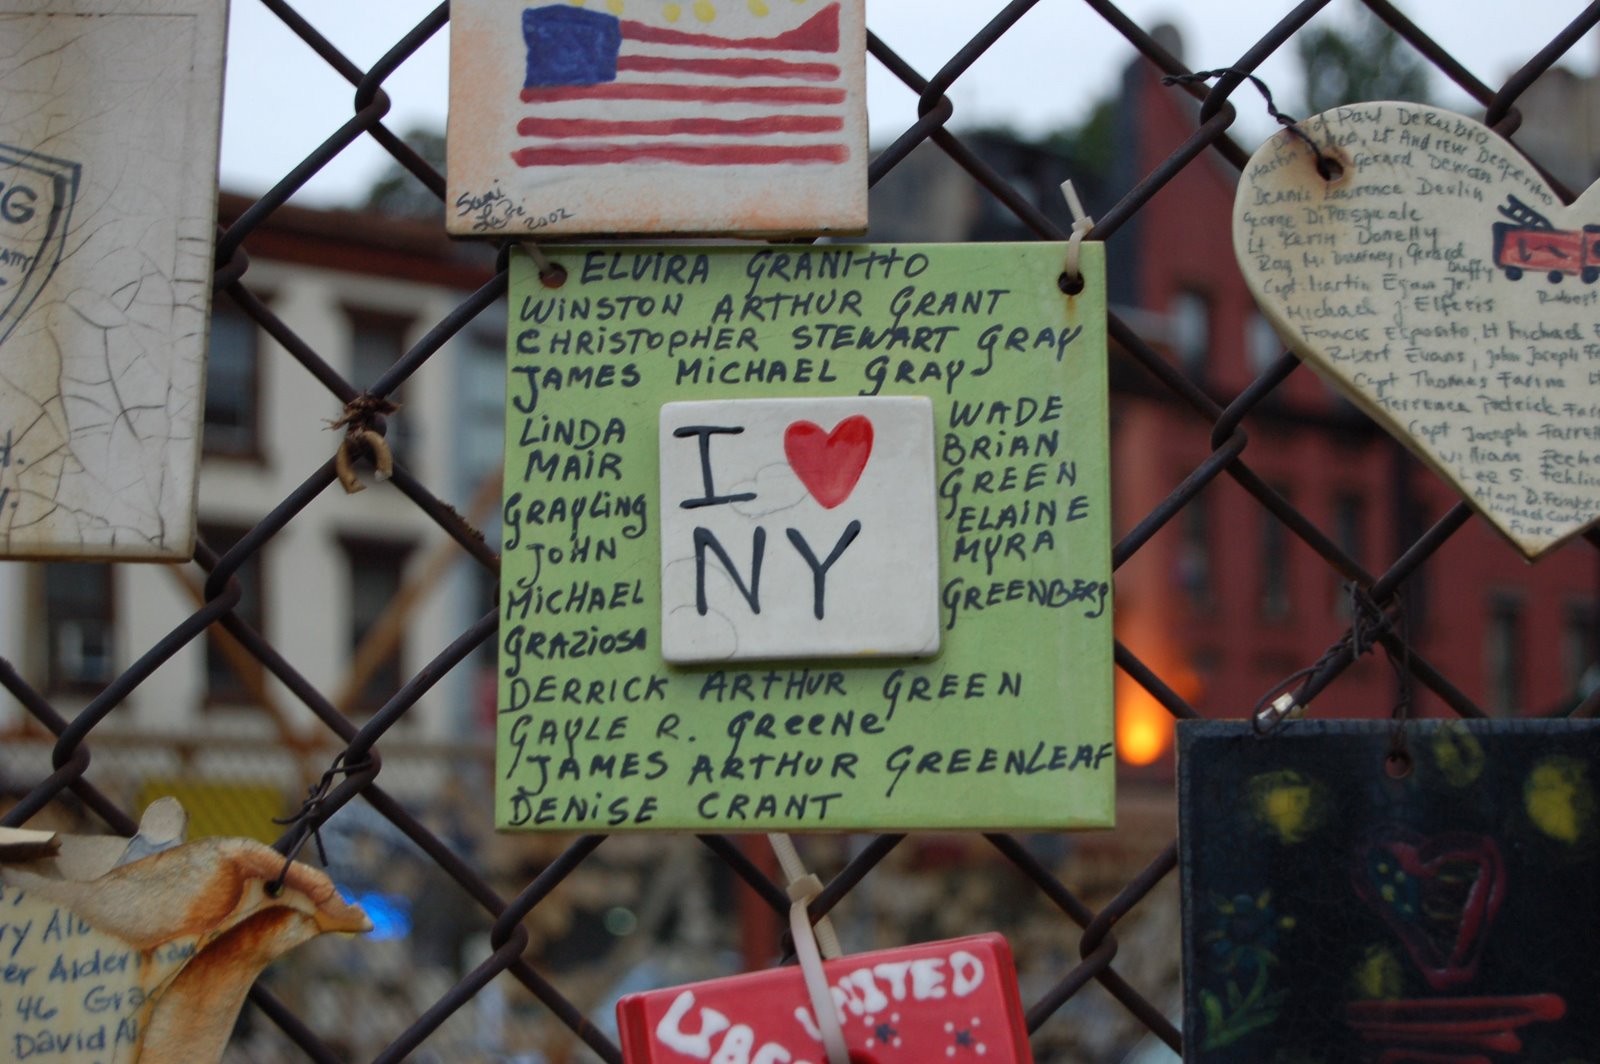 Sami
2002
ELVIRA GRANITTO
WINSTON ARTHUR GRANT
CHRISTOPHER STEWART GRAY
JAMES MICHAEL GRAY
LINDA
MAIR
GRAYLING
JOHN
MICHAEL
GRAZIOSA
I ❤ NY
WADE
BRIAN
GREEN
ELAINE
MYRA
GREENBERG
DERRICK ARTHUR GREEN
GAYLE R. GREENE
JAMES ARTHUR GREENLEAF
DENISE CRANT
Paul DeRubbio
Martin Lt Andrew Desperito
Gerard Dewan
Dennis Lawrence Devlin
George DiPasquale
Lt Kevin Donelly
Ray M. Downey, Gerard
Duffy
Capt. Martin Egan Jr.
Michael J Elferis
Robert
Francis Esposito, Lt Michael
Robert Evans, John Joseph
Capt Thomas Farino Lt
Terrence Patrick
Capt Joseph Farrel
William Feeha
Lee S. Fehlin
Alan D. 
Michael Curti
Fiore
G
ry Al
er Alderman
46 Gra
David Al
UNITED